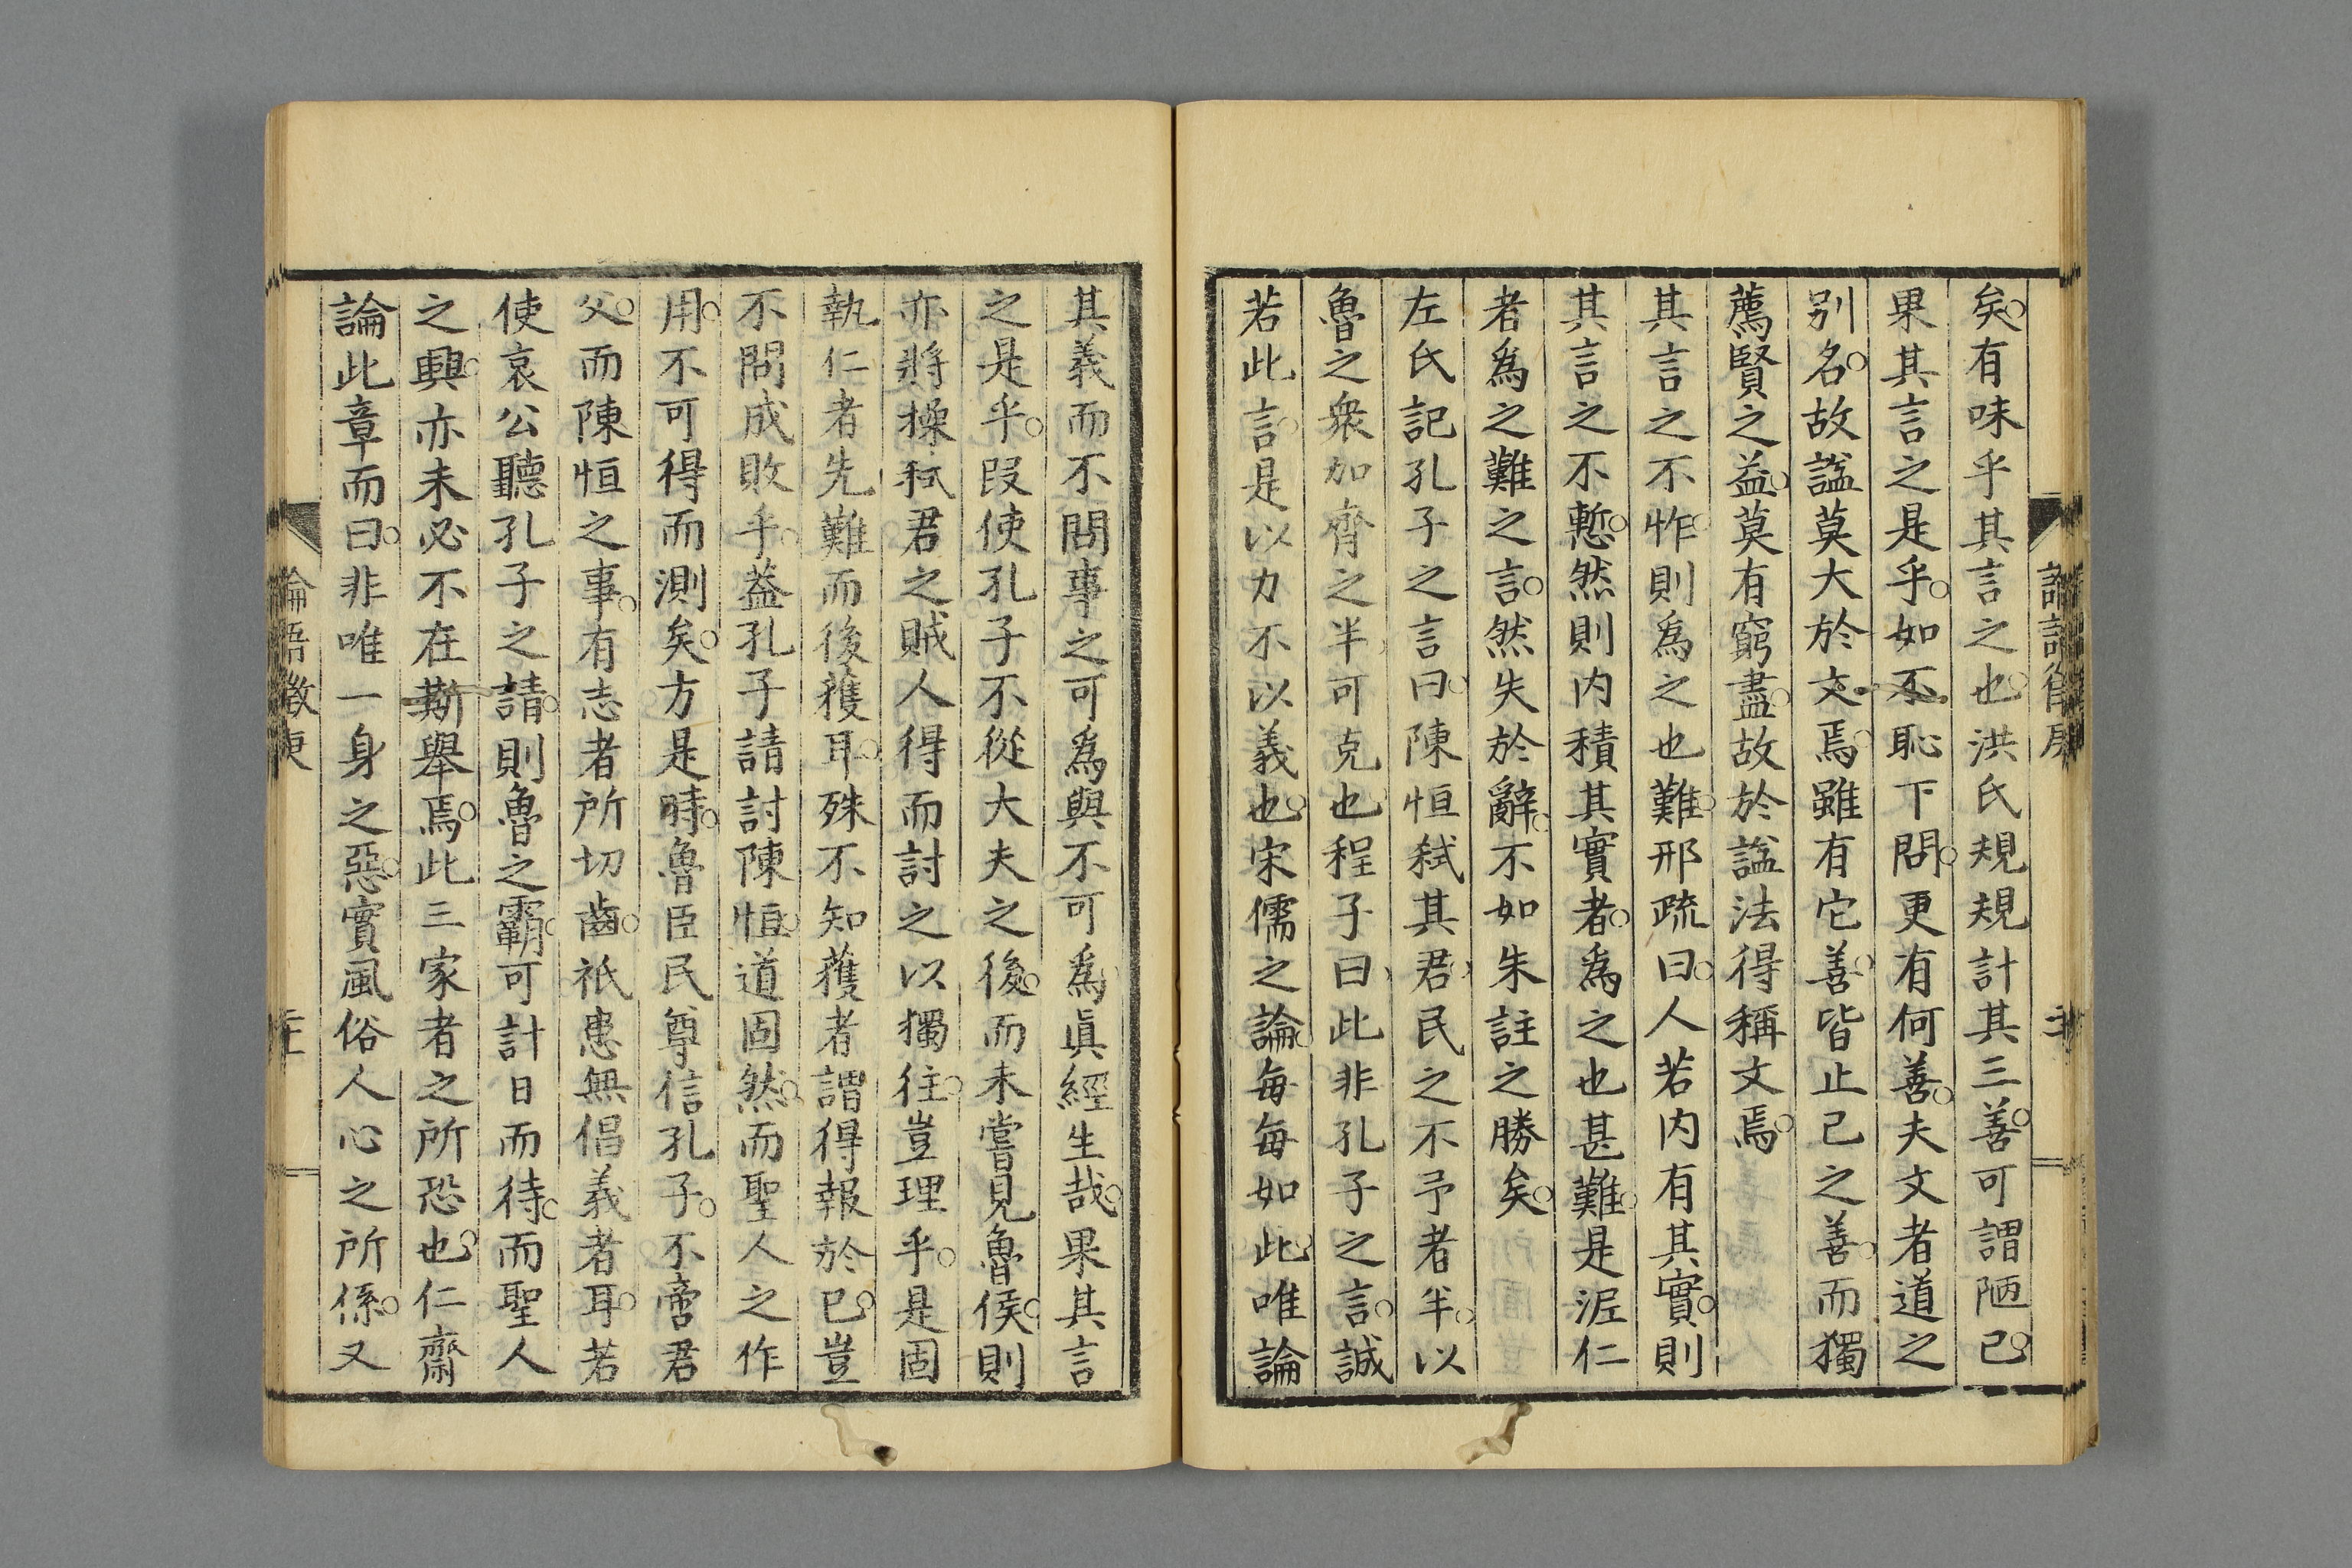 矣。有味乎其言之也。洪氏規規計其三善。可謂陋已。
果其言之是乎。如不恥下問。更有何善。夫文者道之
別名。故諡莫大於文焉。雖有它善。皆止己之善。而獨
薦賢之益。莫有窮盡。故於諡法得稱文焉。
其言之不怍。則爲之也難。邢疏曰。人若內有其實。則
其言之不慙。然則內積其實者。爲之也甚難。是泥仁
者爲之難之言。然失於辭。不如朱註之勝矣。
左氏記孔子之言曰。陳恒弒其君。民之不予者半。以
魯之衆加齊之半。可克也。程子曰。此非孔子之言。誠
若此言。是以力不以義也。宋儒之論。每每如此。唯論
其義而不問事之可爲與不可爲。眞經生哉。果其言
之是乎。叚使孔子不從大夫之後。而未嘗見魯侯。則
亦將操弒君之賊人得而討之以獨往。豈理乎。是固
執仁者先難而後獲耳。殊不知獲者謂得報於已。豈
不問成敗乎。葢孔子請討陳恒。道固然。而聖人之作
用。不可得而測矣。方是時。魯臣民尊信孔子。不啻君
父。而陳恒之事。有志者所切齒。祇患無倡義者耳。若
使哀公聽孔子之請。則魯之霸。可計日而待。而聖人
之興。亦未必不在斯舉焉。此三家者之所恐也。仁齋
論此章而曰。非唯一身之惡。實風俗人心之所係。又
論語徵庚